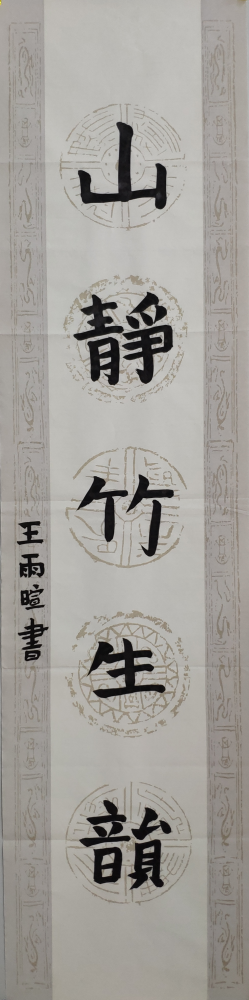 山靜竹生韻
王雨暄書